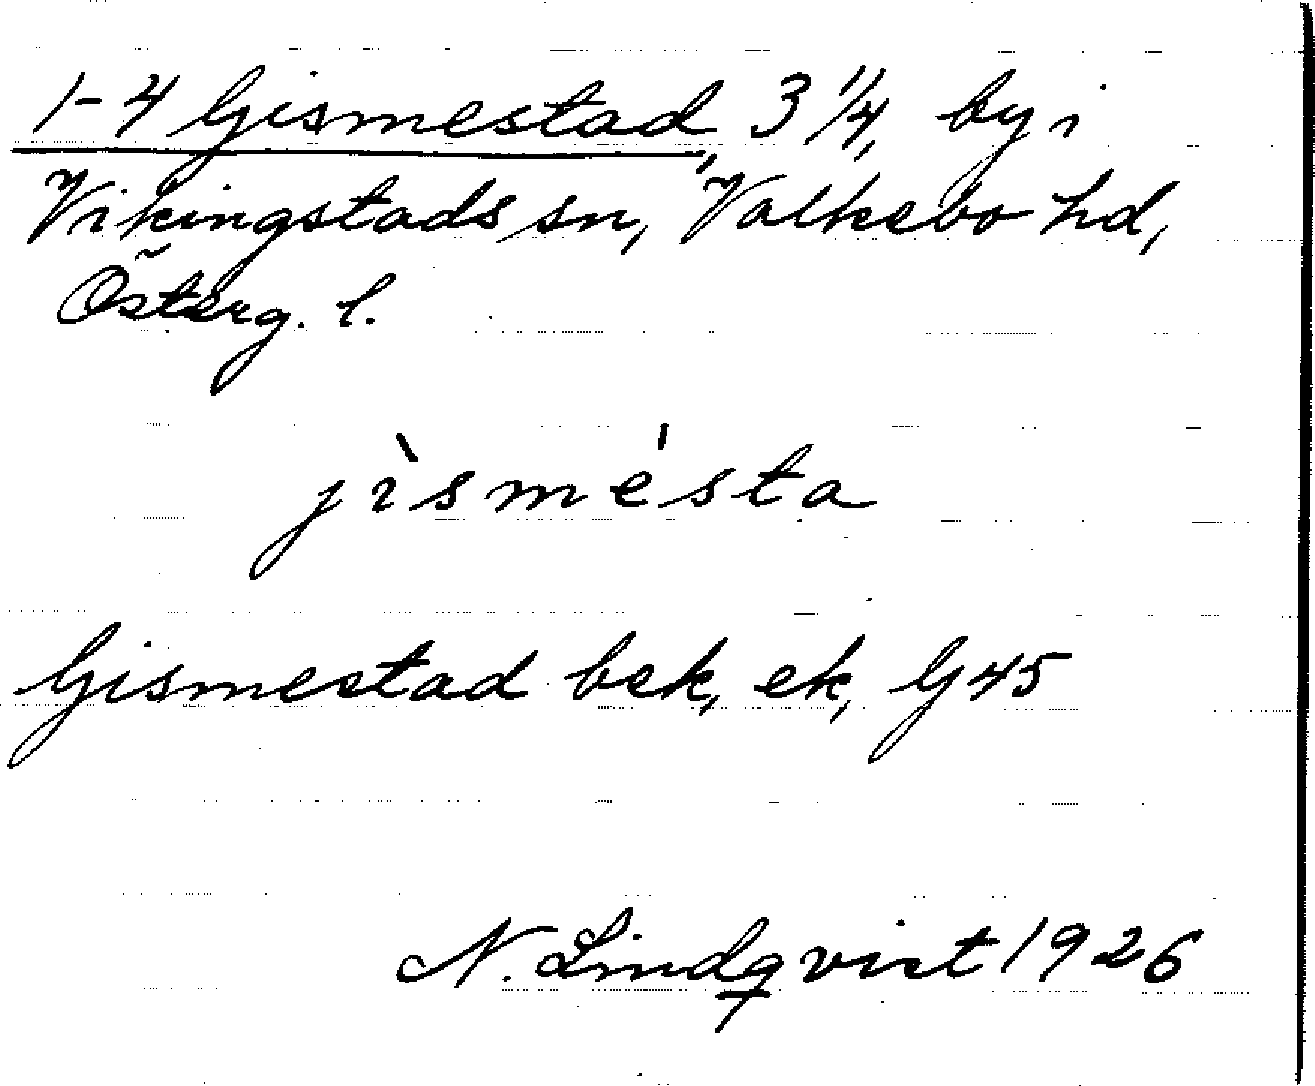 1-4 Gismestad, 3 1/4, by i
Vikingstads sn, Valkebo hd,
Österg. l.
jìsmésta
Gismestad bek, ek, G45
N. Lindqvist 1926